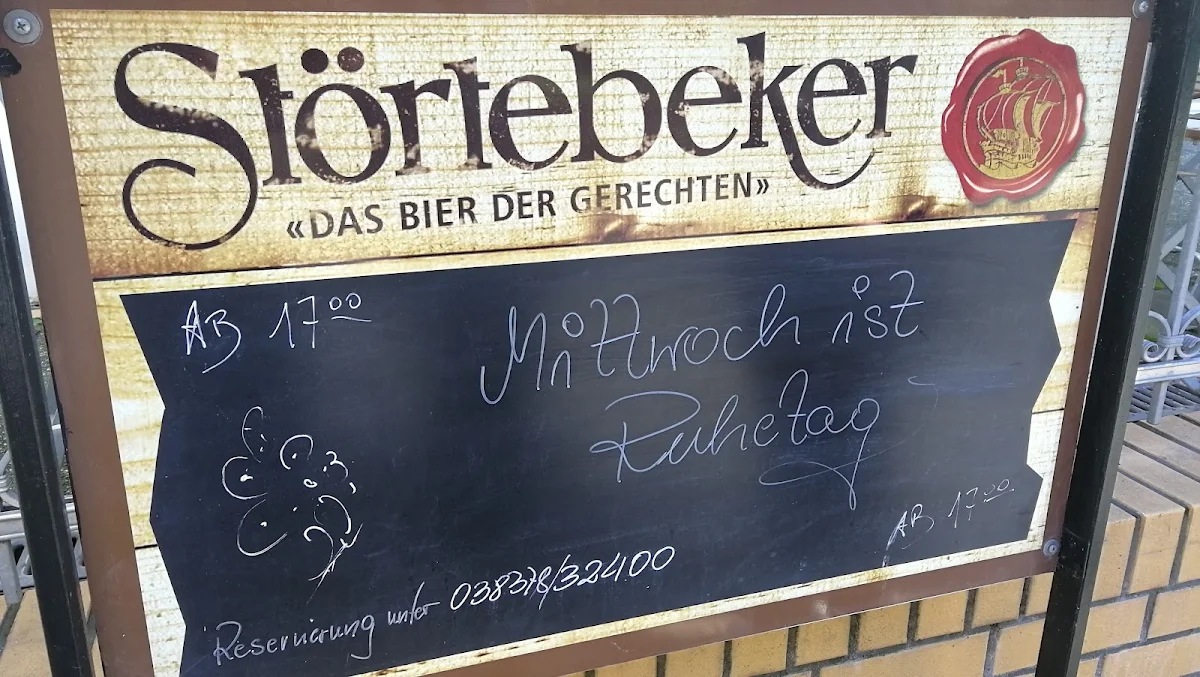 Störtebeker
«DAS BIER DER GERECHTEN»
AB 17⁰⁰
Mittwoch ist
Ruhetag
AB 17⁰⁰
Reservierung unter 038378/32400